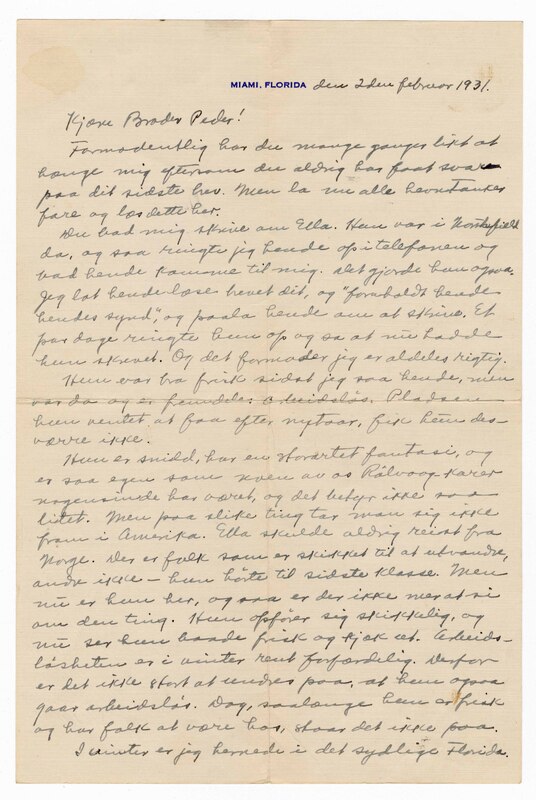 MIAMI, FLORIDA den 2den februar 1931.
Kjære Broder Peder!
Formodentlig har du mange ganger likt at
hænge mig eftersom du aldrig har faat svar
paa dit sidste brev. Men la nu alle hevntanker
fare og læs dette her.
Du bad mig skrive om Ella. Hun var i Northfield
da, og saa ringte jeg hende op i telefonen og
bad hende komme til mig. Det gjorde hun ogsaa.
Jeg lot hende læse brevet dit, og "forehaldt hende
hendes synd" og paala hende om at skrive. Et
par dage ringte hun op og sa at nu hadde
hun skrevet. Og det formoder jeg er aldeles rigtig.
Hun var bra frisk sidst jeg saa hende, men
var da og er fremdeles arbeidsløs. Pladsen
hun ventet at faa efter nytaar, fik hun des-
værre ikke.
Hun er snidd, har en storartet fantasi, og
er saa egen som noen av os Rålvaag karer
nogensinde har været, og det betyr ikke saa
litet. Men paa slike ting tar man sig ikke
fram i Amerika. Ella skulde aldrig reist fra
Norge. Der er folk som er skikket til at utvandre,
andre ikke – hun hørte til sidste klasse. Men
nu er hun her, og saa er der ikke mer at si
om den ting. Hun opfører sig skikkelig, og
nu ser hun baade frisk og kjæk ut. Arbeids-
løsheten er i vinter rent forfærdelig. Derfor
er det ikke stort at undres paa, at hun ogsaa
gaar arbeidsløs. Dog, saalænge hun er frisk
og har folk at være hos, staar det ikke paa.
I vinter er jeg hernede i det sydlige Florida.